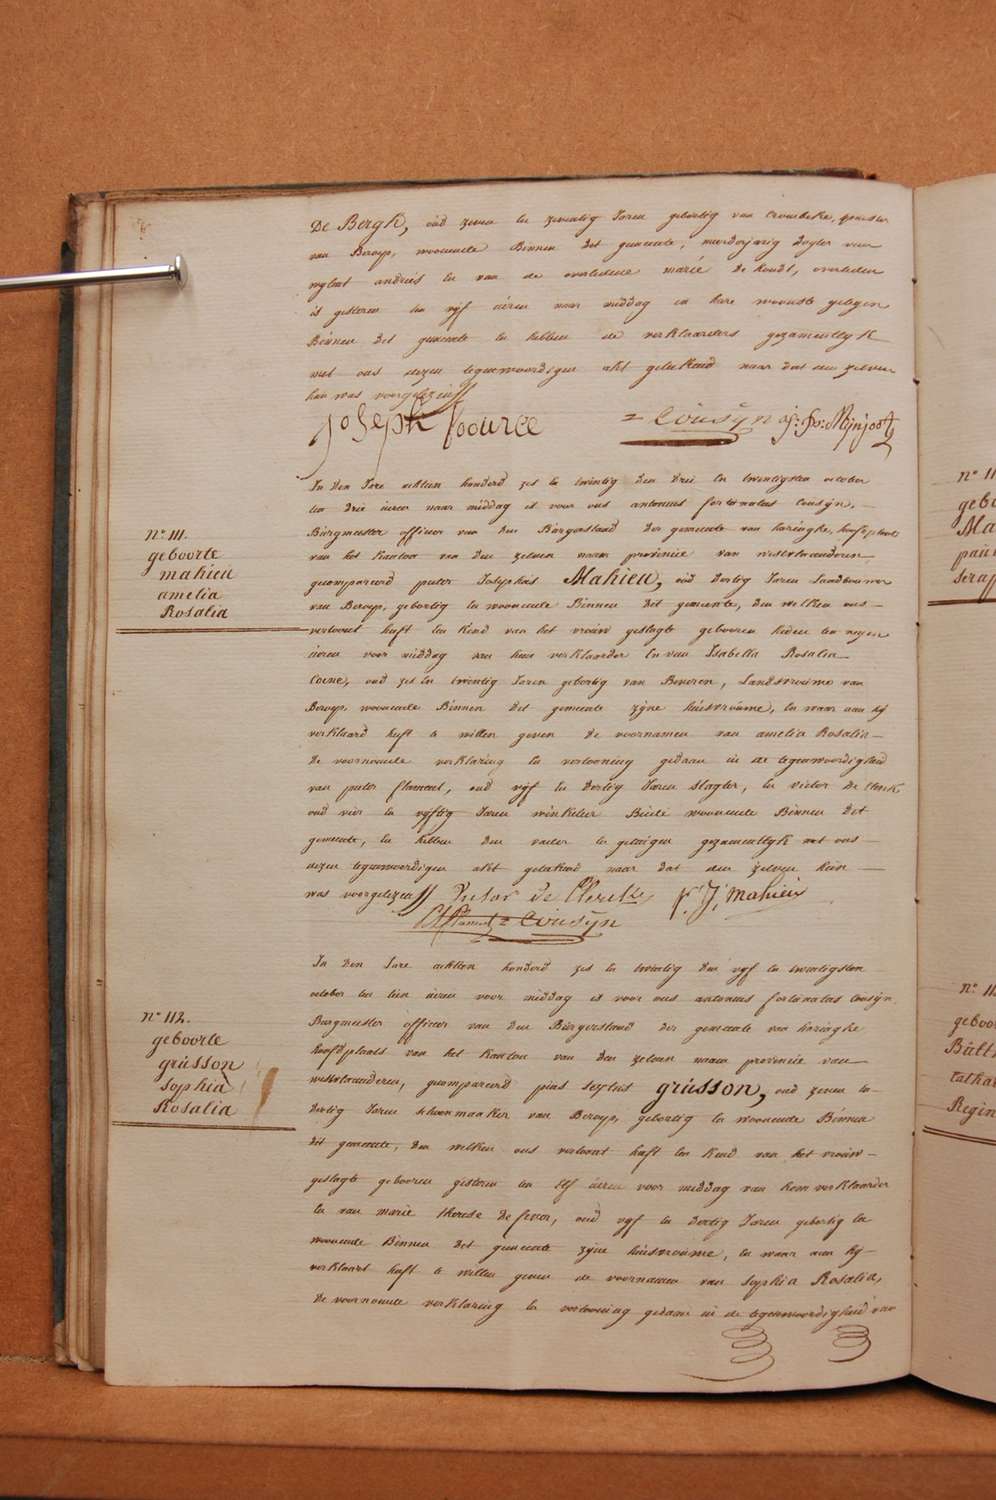 De Bergh, oud zeven en zeventig Jaren gebortig van Crombeke,
van Beroep, woonende Binnen dit gemeente, meerderjarig dogter van
wylent andries en van de overledene marie De houdt, overleden
is gisteren ten vyf uéren naer middag in hare woonste gelegen
Binnen dit gemeente en hebben de verklaarders gezamentlyk
met ons dezen tegenwoordigen akt geteekend naer dat den zelven
hun was voorgelezen //
Joseph = Cousÿn
In den Jare achtien honderd zes en twintig den drie en twintigsten october
ten drie uéren naer middag is voor ons antonius fortunatus Cousÿn,
Burgmeester officier van den Burgerstand der gemeente van haringhe, hoofdplaats
van het Kanton van den zelven naem provincie van westvlaanderen
gecompareerd pieter Josephus Mahieu, oud dertig Jaren Landbouwer
van Beroep, gebortig en woonende Binnen dit gemeente, den welken ons
vertoont heeft een Kind van het vrouw geslagte gebooren heden ten negen
uéren voor middag van hem verklaarder En van Isabella Rosalia
Coene, oud zes en twintig Jaren gebortig van Beveren, Landsvrouwe van
Beroep, woonende Binnen dit gemeente zÿne huisvrouwe, en waar aan hÿ
verklaard heeft te willen geven de voornamen van amelia Rosalia
De voornoemde verklaring en vertooning gedaan in de tegenwoordigheid
van pieter flameel, oud vyf en dertig Jaren slagter, en victor De Clerck
oud vier en vyftig Jaren winkelier Beide woonende Binnen dit
gemeente, en hebben den vader en getuigen gezamentlyk met ons
dezen tegenwoordigen akt geteekend naer dat den zelven hun
was voorgelezen // Victor de Clerck P: J: Mahieu
= Cousÿn
In den Jare achtien honderd zes en twintig den vyf en twintigsten
october ten tien uéren voor middag is voor ons antonius fortunatus Cousÿn
Burgmeester officier van den Burgerstand der gemeente van haringhe
hoofdplaats van het Kanton van den zelven naem provincie van
westvlaanderen, gecompareerd pius grusson, oud zeven en
dertig Jaren schoenmaaker van Beroep, gebortig en woonende Binnen
dit gemeente, den welken ons vertoont heeft een Kind van het vrouw
geslagte gebooren gisteren ten elf uéren voor middag van hem verklaarder
En van marie therese De fever, oud vyf en dertig Jaren gebortig en
woonende Binnen dit gemeente zÿne huisvrouwe, en waar aan hÿ
verklaart heeft te willen geven de voornamen van Sophia Rosalia,
De voornoemde verklaring en vertooning gedaan in de tegenwoordigheid van
n° 111.
geboorte
mahieu
amelia
Rosalia
n° 112.
geboorte
grusson
sophia
Rosalia